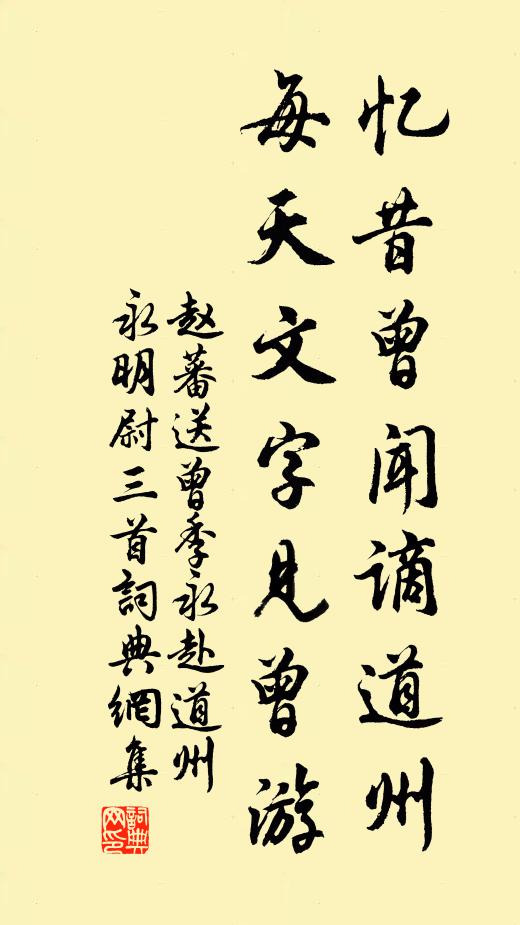 忆昔曾闻谪道州
每天文字见曾游
赵蕃送曾季永赴道州
永明尉三首詞典網集
詞典網印